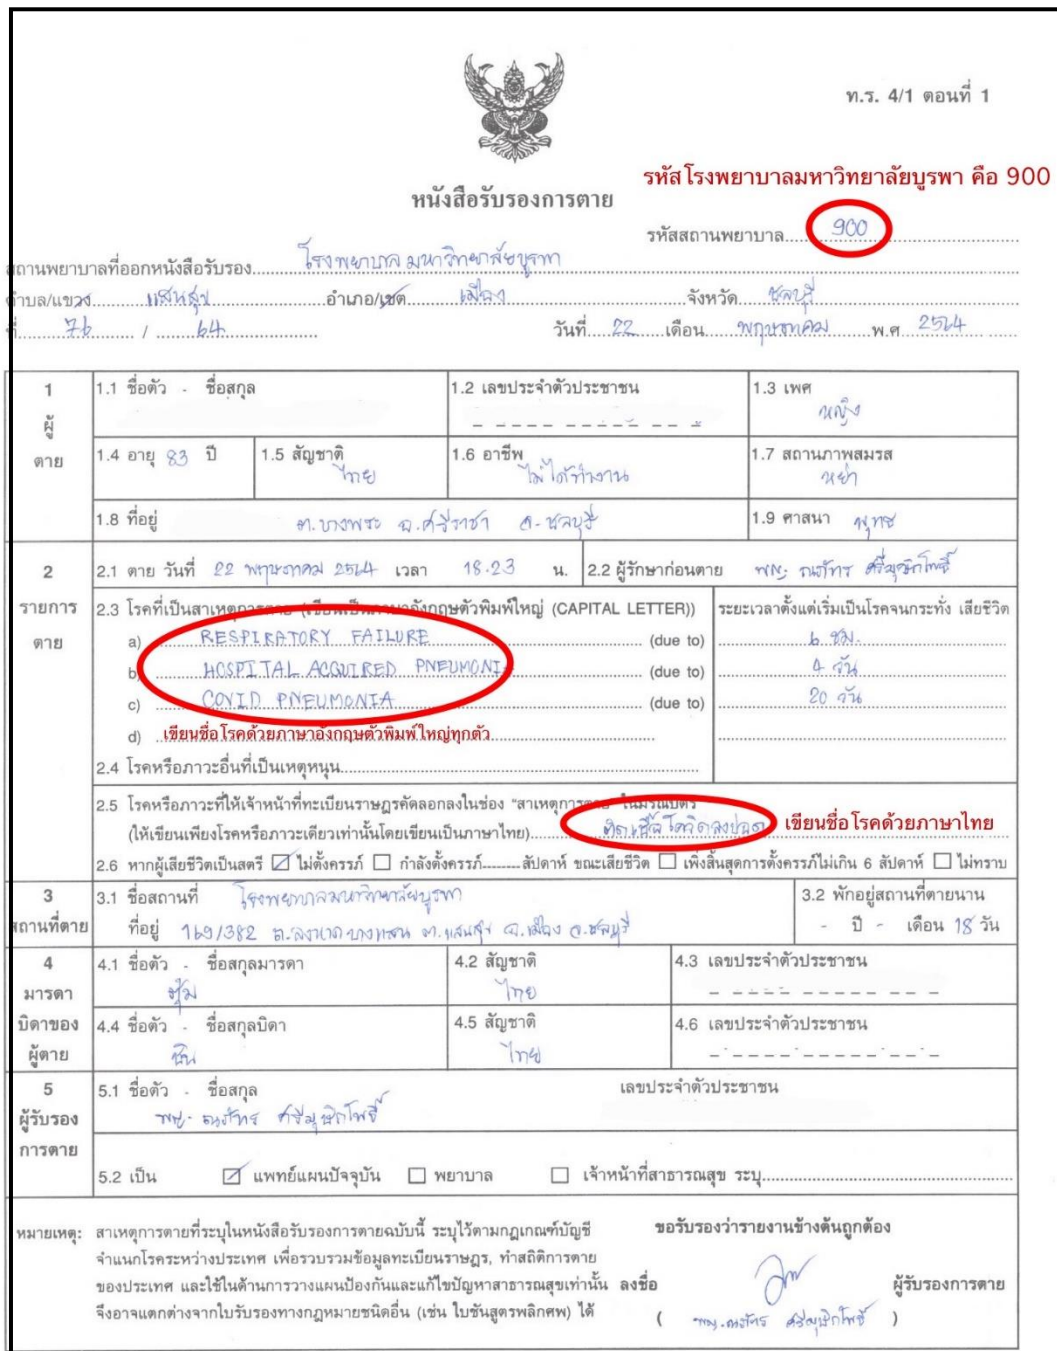 ท.ร. 4/1 ตอนที่ 1
รหัสโรงพยาบาลมหาวิทยาลัยบูรพา คือ 900
หนังสือรับรองการตาย
รหัสสถานพยาบาล 900
สถานพยาบาลที่ออกหนังสือรับรอง โรงพยาบาล มหาวิทยาลัยบูรพา
ตำบล/แขวง แสนสุข อำเภอ/เขต เมือง จังหวัด ชลบุรี
ที่ 76 / 64 วันที่ 22 เดือน พฤษภาคม พ.ศ 2564
1 ผู้ตาย
1.1 ชื่อตัว - ชื่อสกุล 1.2 เลขประจำตัวประชาชน 1.3 เพศ หญิง
1.4 อายุ 83 ปี 1.5 สัญชาติ ไทย 1.6 อาชีพ ไม่ได้ทำงาน 1.7 สถานภาพสมรส หย่า
1.8 ที่อยู่ ต.บางพระ อ.ศรีราชา จ.ชลบุรี 1.9 ศาสนา พุทธ
2 รายการตาย
2.1 ตาย วันที่ 22 พฤษภาคม 2564 เวลา 18.23 น. 2.2 ผู้รักษาก่อนตาย พญ.
2.3 โรคที่เป็นสาเหตุการตาย (เขียนเป็นภาษาอังกฤษตัวพิมพ์ใหญ่ (CAPITAL LETTER)) ระยะเวลาตั้งแต่เริ่มเป็นโรคจนกระทั่ง เสียชีวิต
a) RESPIRATORY FAILURE (due to) 6 ชม.
b) HOSPITAL ACQUIRED PNEUMONIA (due to) 4 วัน
c) COVID PNEUMONIA (due to) 20 วัน
d) เขียนชื่อโรคด้วยภาษาอังกฤษตัวพิมพ์ใหญ่ทุกตัว
2.4 โรคหรือภาวะอื่นที่เป็นเหตุหนุน
2.5 โรคหรือภาวะที่ให้เจ้าหน้าที่ทะเบียนราษฎรคัดลอกลงในช่อง "สาเหตุการตาย" ในมรณบัตร
(ให้เขียนเพียงโรคหรือภาวะเดียวเท่านั้นโดยเขียนเป็นภาษาไทย) ติดเชื้อโควิดลงปอด เขียนชื่อโรคด้วยภาษาไทย
2.6 หากผู้เสียชีวิตเป็นสตรี ☑ ไม่ตั้งครรภ์ ☐ กำลังตั้งครรภ์ สัปดาห์ ขณะเสียชีวิต ☐ เพิ่งสิ้นสุดการตั้งครรภ์ไม่เกิน 6 สัปดาห์ ☐ ไม่ทราบ
3 สถานที่ตาย
3.1 ชื่อสถานที่ โรงพยาบาลมหาวิทยาลัยบูรพา 3.2 พักอยู่สถานที่ตายนาน
ที่อยู่ 169/382 ถ.ลงหาดบางแสน ต.แสนสุข อ.เมือง จ.ชลบุรี - ปี - เดือน 18 วัน
4 มารดา บิดาของผู้ตาย
4.1 ชื่อตัว - ชื่อสกุลมารดา 4.2 สัญชาติ ไทย 4.3 เลขประจำตัวประชาชน
4.4 ชื่อตัว - ชื่อสกุลบิดา 4.5 สัญชาติ ไทย 4.6 เลขประจำตัวประชาชน
5 ผู้รับรองการตาย
5.1 ชื่อตัว - ชื่อสกุล เลขประจำตัวประชาชน
พญ.
5.2 เป็น ☑ แพทย์แผนปัจจุบัน ☐ พยาบาล ☐ เจ้าหน้าที่สาธารณสุข ระบุ
หมายเหตุ: สาเหตุการตายที่ระบุในหนังสือรับรองการตายฉบับนี้ ระบุไว้ตามกฎเกณฑ์บัญชี
จำแนกโรคระหว่างประเทศ เพื่อรวบรวมข้อมูลทะเบียนราษฎร, ทำสถิติการตาย
ของประเทศ และใช้ในด้านการวางแผนป้องกันและแก้ไขปัญหาสาธารณสุขเท่านั้น
จึงอาจแตกต่างจากใบรับรองทางกฎหมายชนิดอื่น (เช่น ใบชันสูตรพลิกศพ) ได้
ขอรับรองว่ารายงานข้างต้นถูกต้อง
ลงชื่อ ผู้รับรองการตาย
( พญ. )